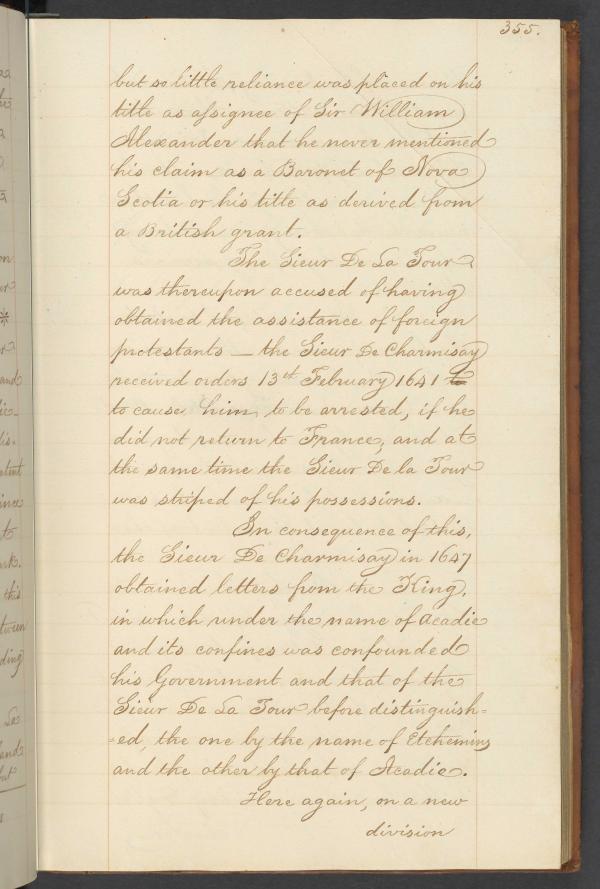 355.
but so little reliance was placed on his
title as assignee of Sir William
Alexander that he never mentioned
his claim as a Baronet of Nova
Scotia or his title as derived from
a British grant.
The Sieur De La Tour
was thereupon accused of having
obtained the assistance of foreign
protestants — the Sieur De Charmisay
received orders 13th February 1641 to
to cause him to be arrested, if he
did not return to France, and at
the same time the Sieur De la Tour
was striped of his possessions.
In consequence of this,
the Sieur De Charmisay in 1647
obtained letters from the King,
in which under the name of Acadie
and its confines was confounded
his Government and that of the
Sieur De La Tour before distinguish=
=ed, the one by the name of Etchemins
and the other by that of Acadie.
Here again, on a new
division